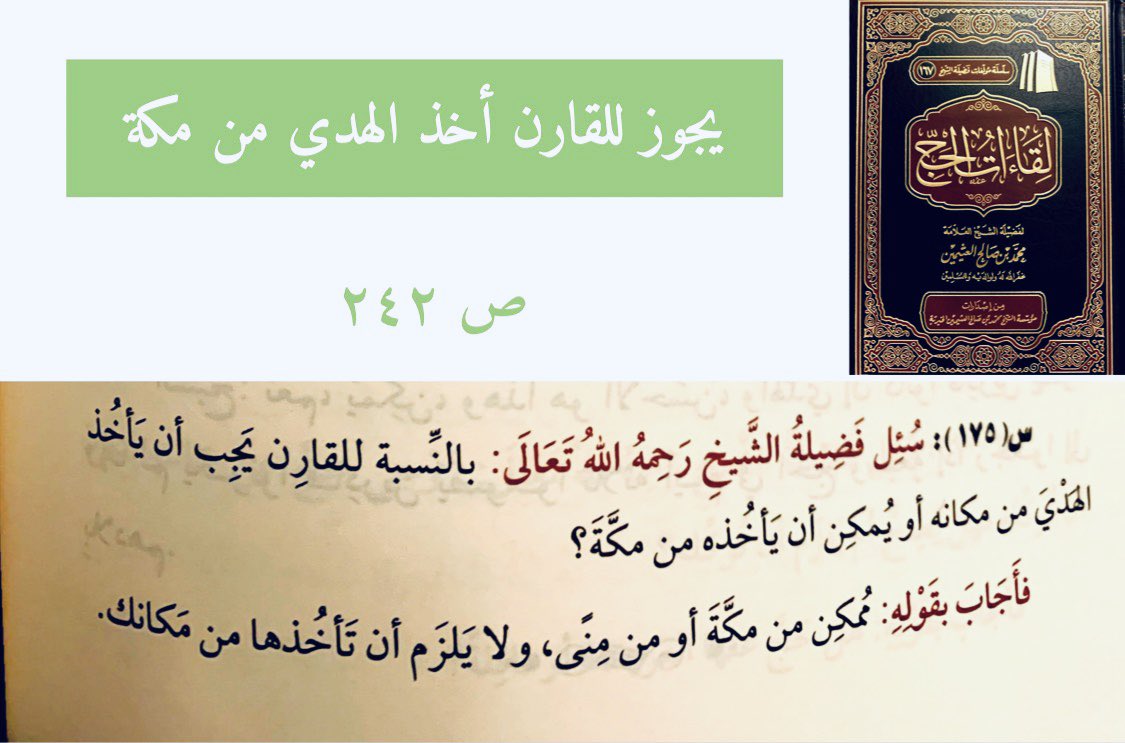 يجوز للقارن أخذ الهدي من مكة
ص ٢٤٢
سلسلة مؤلفات فضيلة الشيخ (١٦٧)
لقاءات الحج
لفضيلة الشيخ العلامة
محمد بن صالح العثيمين
غفر الله له ولوالديه وللمسلمين
من إصدارات
مؤسسة الشيخ محمد بن صالح العثيمين الخيرية
س(١٧٥): سُئِل فَضِيلةُ الشَّيخِ رَحِمهُ اللهُ تَعَالَى: بالنِّسبة للقارِن يَجِب أن يَأخُذ
الهَدْيَ من مكانه أو يُمكِن أن يَأخُذه من مكَّةَ؟
فأَجَابَ بقَوْلِهِ: مُمكِن من مكَّةَ أو من مِنًى، ولا يَلزَم أن تَأخُذها من مَكانك.